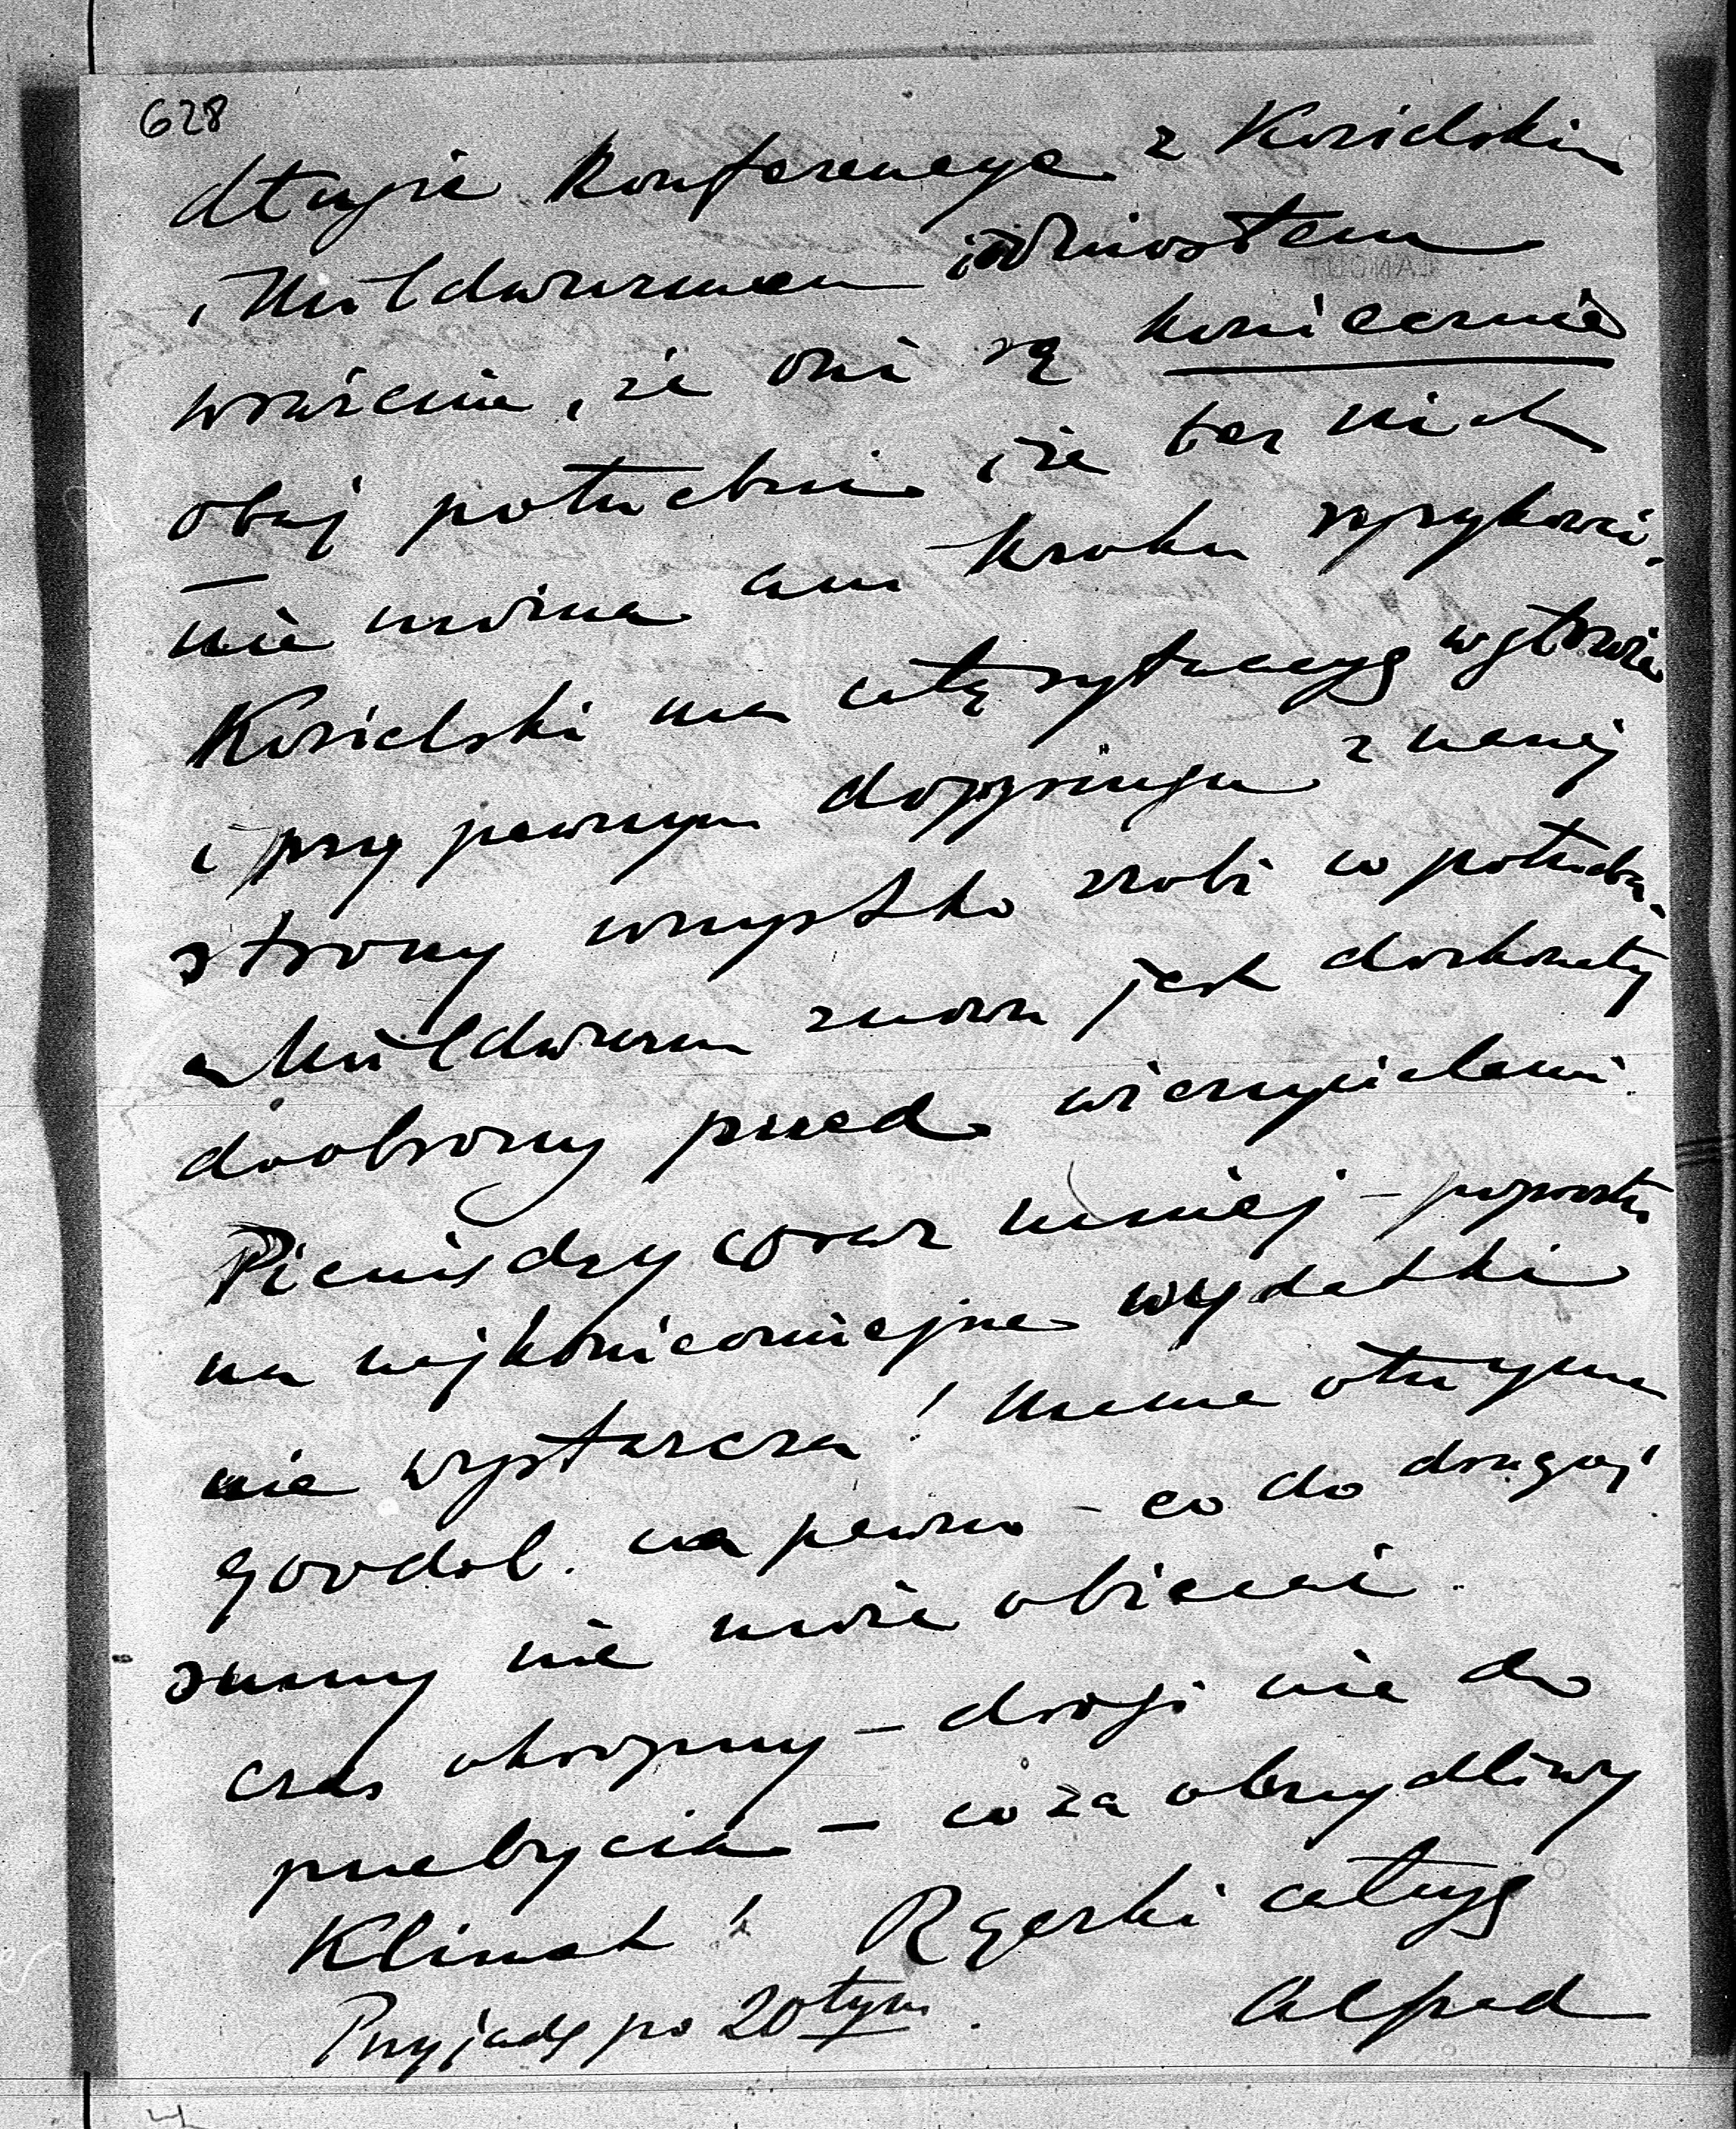 628
długie konferencye z Kosielskim
i Muldwurmem i odniosłem
wrażenie, że oni są koniecznie
obaj potrzebni i że bez nich
nie można ani kroku
Kosielski ma całą sytuacyę w głowie
i przy pewnym doppingu z naszej
strony wszystko zrobi co potrzeba.
a Muldwurm znowu jest doskonały
do obrony przed wierzycielami.
Pieniędzy coraz mniej – poprostu
na najkonieczniejsze wydatki
nie wystarcza! Mama otrzyma
500 dol. na pewno – co do drugiej
sumy nie może obiecać.
czas okropny – drogi nie do
przebycia – co za obrzydliwy
Klimat! Rączki całuję
Przyjadę po 20tym. Alfred